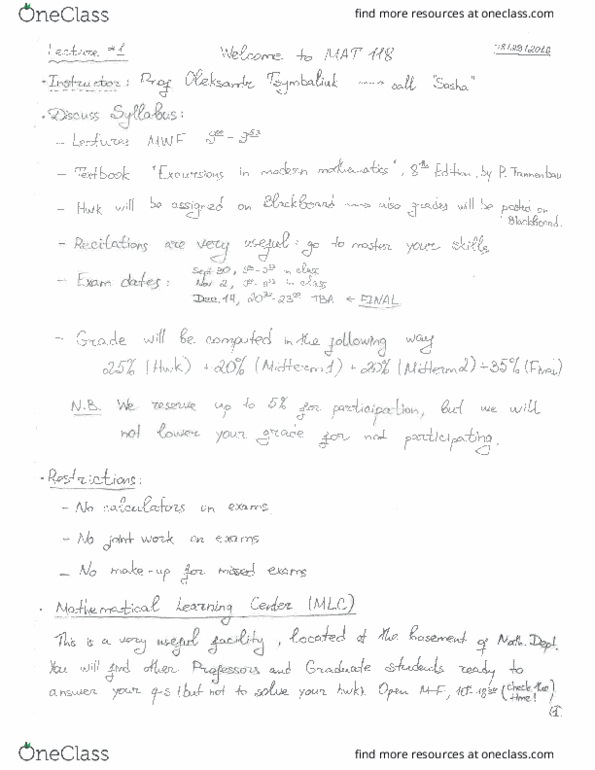 OneClass
find more resources at oneclass.com
Lecture #1 Welcome to MAT 118 08/29/2016
• Instructor: Prof Oleksandr Tsymbaliuk call "Sasha"
• Discuss Syllabus:
– Lectures MWF
– Textbook "Excursions in modern mathematics", 8th Edition, by P. Tannenbau
– Hwk will be assigned on Blackboard also grades will be posted on Blackboard.
– Recitations are very useful: go to master your skills
– Exam dates: Sept 30, in class
Nov 2, in class
Dec. 14, TBA ← FINAL
– Grade will be computed in the following way
25% (Hwk) + 20% (Midterm 1) + 20% (Midterm 2) + 35% (Final)
N.B. We reserve up to 5% for participation, but we will
not lower your grade for not participating.
• Restrictions:
– No calculators on exams
– No joint work on exams
– No make-up for missed exams
• Mathematical Learning Center (MLC)
This is a very useful facility, located at the basement of Math. Dept.
You will find other Professors and Graduate students ready to
answer your q-s (but not to solve your hwk). Open M-F, (check the time!)
1
OneClass
find more resources at oneclass.com